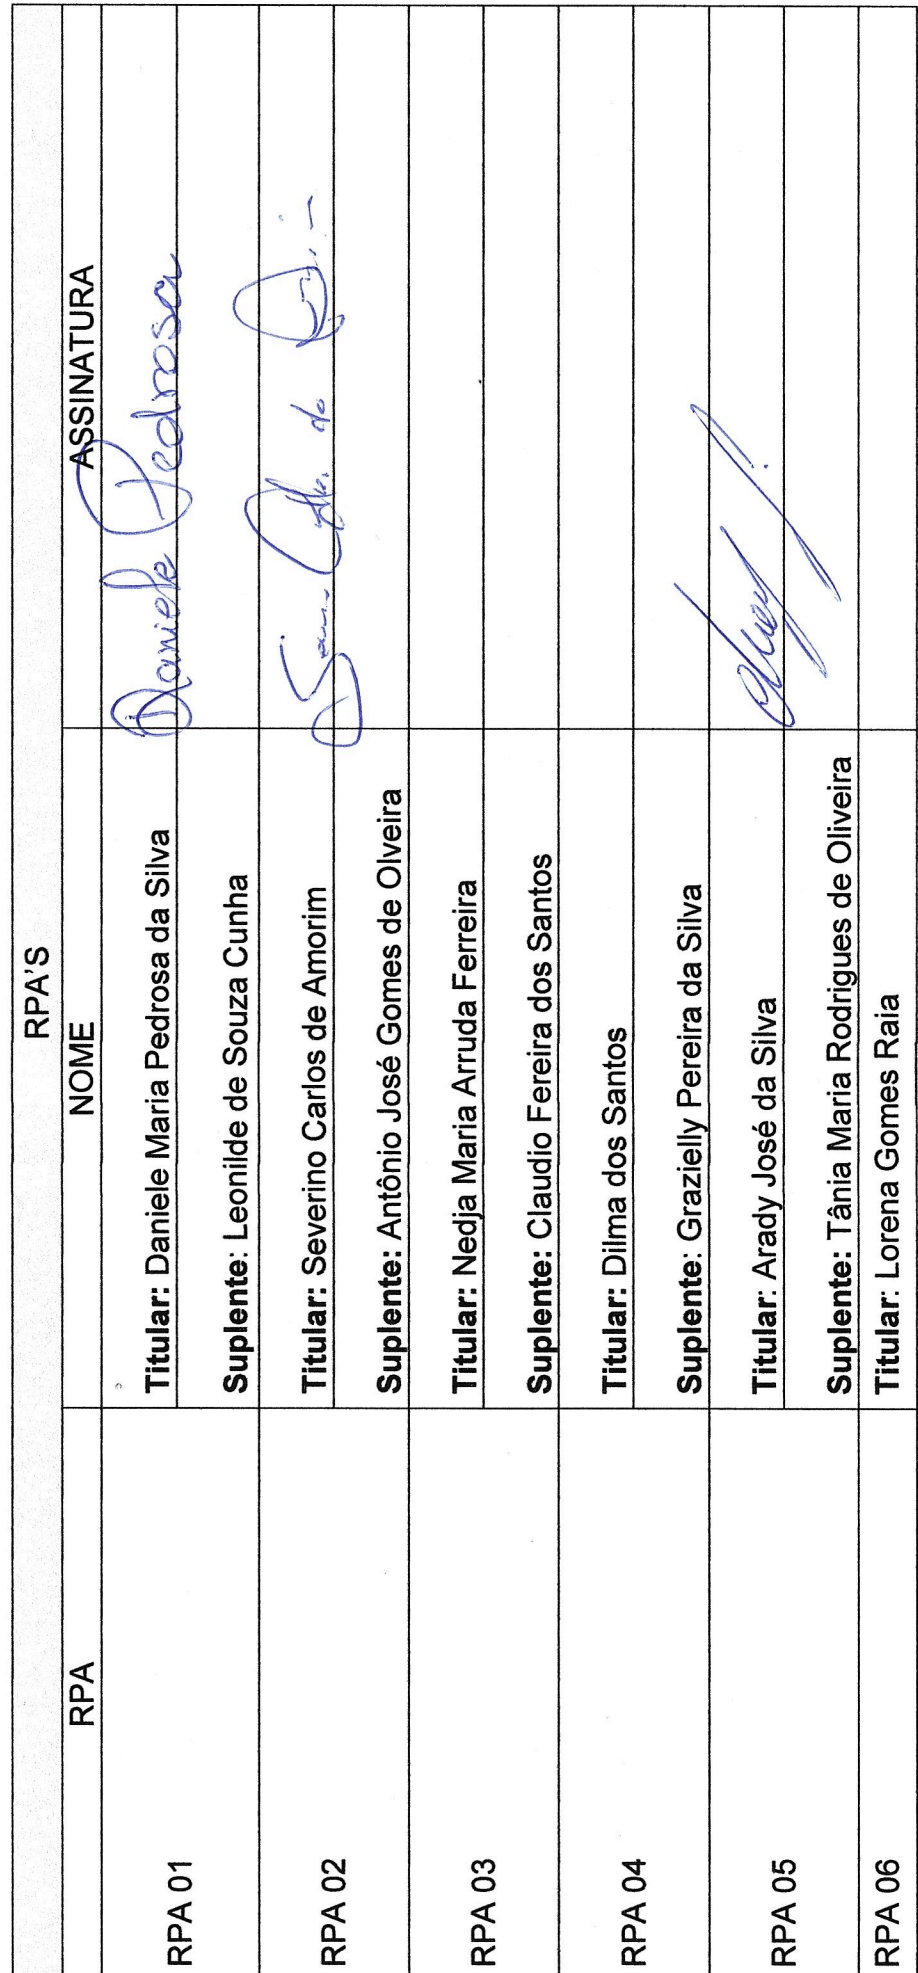 RPA'S
RPA NOME ASSINATURA
RPA 01
Titular: Daniele Maria Pedrosa da Silva Daniele Pedrosa
Suplente: Leonilde de Souza Cunha
RPA 02
Titular: Severino Carlos de Amorim
Suplente: Antônio José Gomes de Olveira
RPA 03
Titular: Nedja Maria Arruda Ferreira
Suplente: Claudio Fereira dos Santos
RPA 04
Titular: Dilma dos Santos
Suplente: Grazielly Pereira da Silva
RPA 05
Titular: Arady José da Silva
Suplente: Tânia Maria Rodrigues de Oliveira
RPA 06
Titular: Lorena Gomes Raia